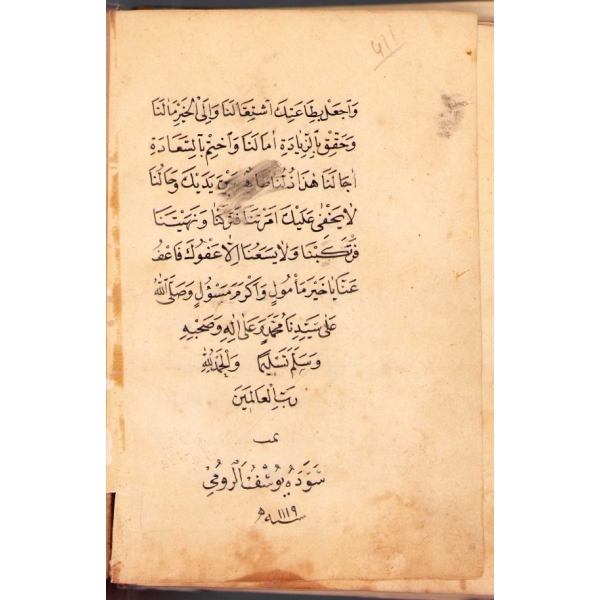 ٤١١
وَاجْعَلْ بِطَاعَتِكَ اشْتِغَالَنَا وَاِلَى الْخَيْرِ مَاٰلَنَا
وَحَقِّقْ بِالزِّيَادَةِ اٰمَالَنَا وَاخْتِمْ بِالسَّعَادَةِ
اٰجَالَنَا هٰذَا ذُلُّنَا ظَاهِرٌ بَيْنَ يَدَيْكَ وَحَالُنَا
لَا يَخْفٰى عَلَيْكَ اَمَرْتَنَا فَتَرَكْنَا وَنَهَيْتَنَا
فَرْتَكَبْنَا وَلَا يَسَعُنَا اِلَّا عَفْوُكَ فَاعْفُ
عَنَّا يَا خَيْرَ مَأْمُولٍ وَاَكْرَمَ مَسْؤُلٍ وَصَلَّى اللّٰهُ
عَلٰى سَيِّدِنَا مُحَمَّدٍ وَعَلٰى اٰلِهِ وَصَحْبِهِ
وَسَلَّمَ تَسْلِيمًا وَالْحَمْدُ لِلّٰهِ
رَبِّ الْعَالَمِينَ
تمت
سَوَّدَهُ يُوسُفُ الرُّومِيُّ
سنه ١١١٩ هـ